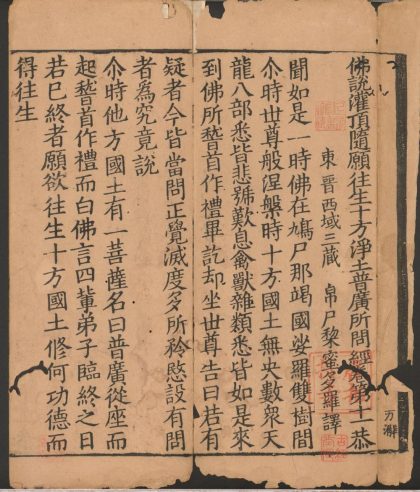 佛說灌頂隨願往生十方淨土普廣所問經卷第十一 恭
東晉西域三藏 帛尸黎蜜多羅譯
聞如是一時佛在鳩尸那竭國娑羅雙樹間
尒時世尊般涅槃時十方國土無央數衆天
龍八部悉皆悲號歎息禽獸雜類悉皆如是來
到佛所稽首作禮畢訖却坐世尊告曰若有
疑者今皆當問正覺滅度多所矜愍設有問
者為究竟說
尒時他方國土有一菩薩名曰普廣從座而
起稽首作禮而白佛言四輩弟子臨終之日
若已終者願欲往生十方國土修何功德而
得往生